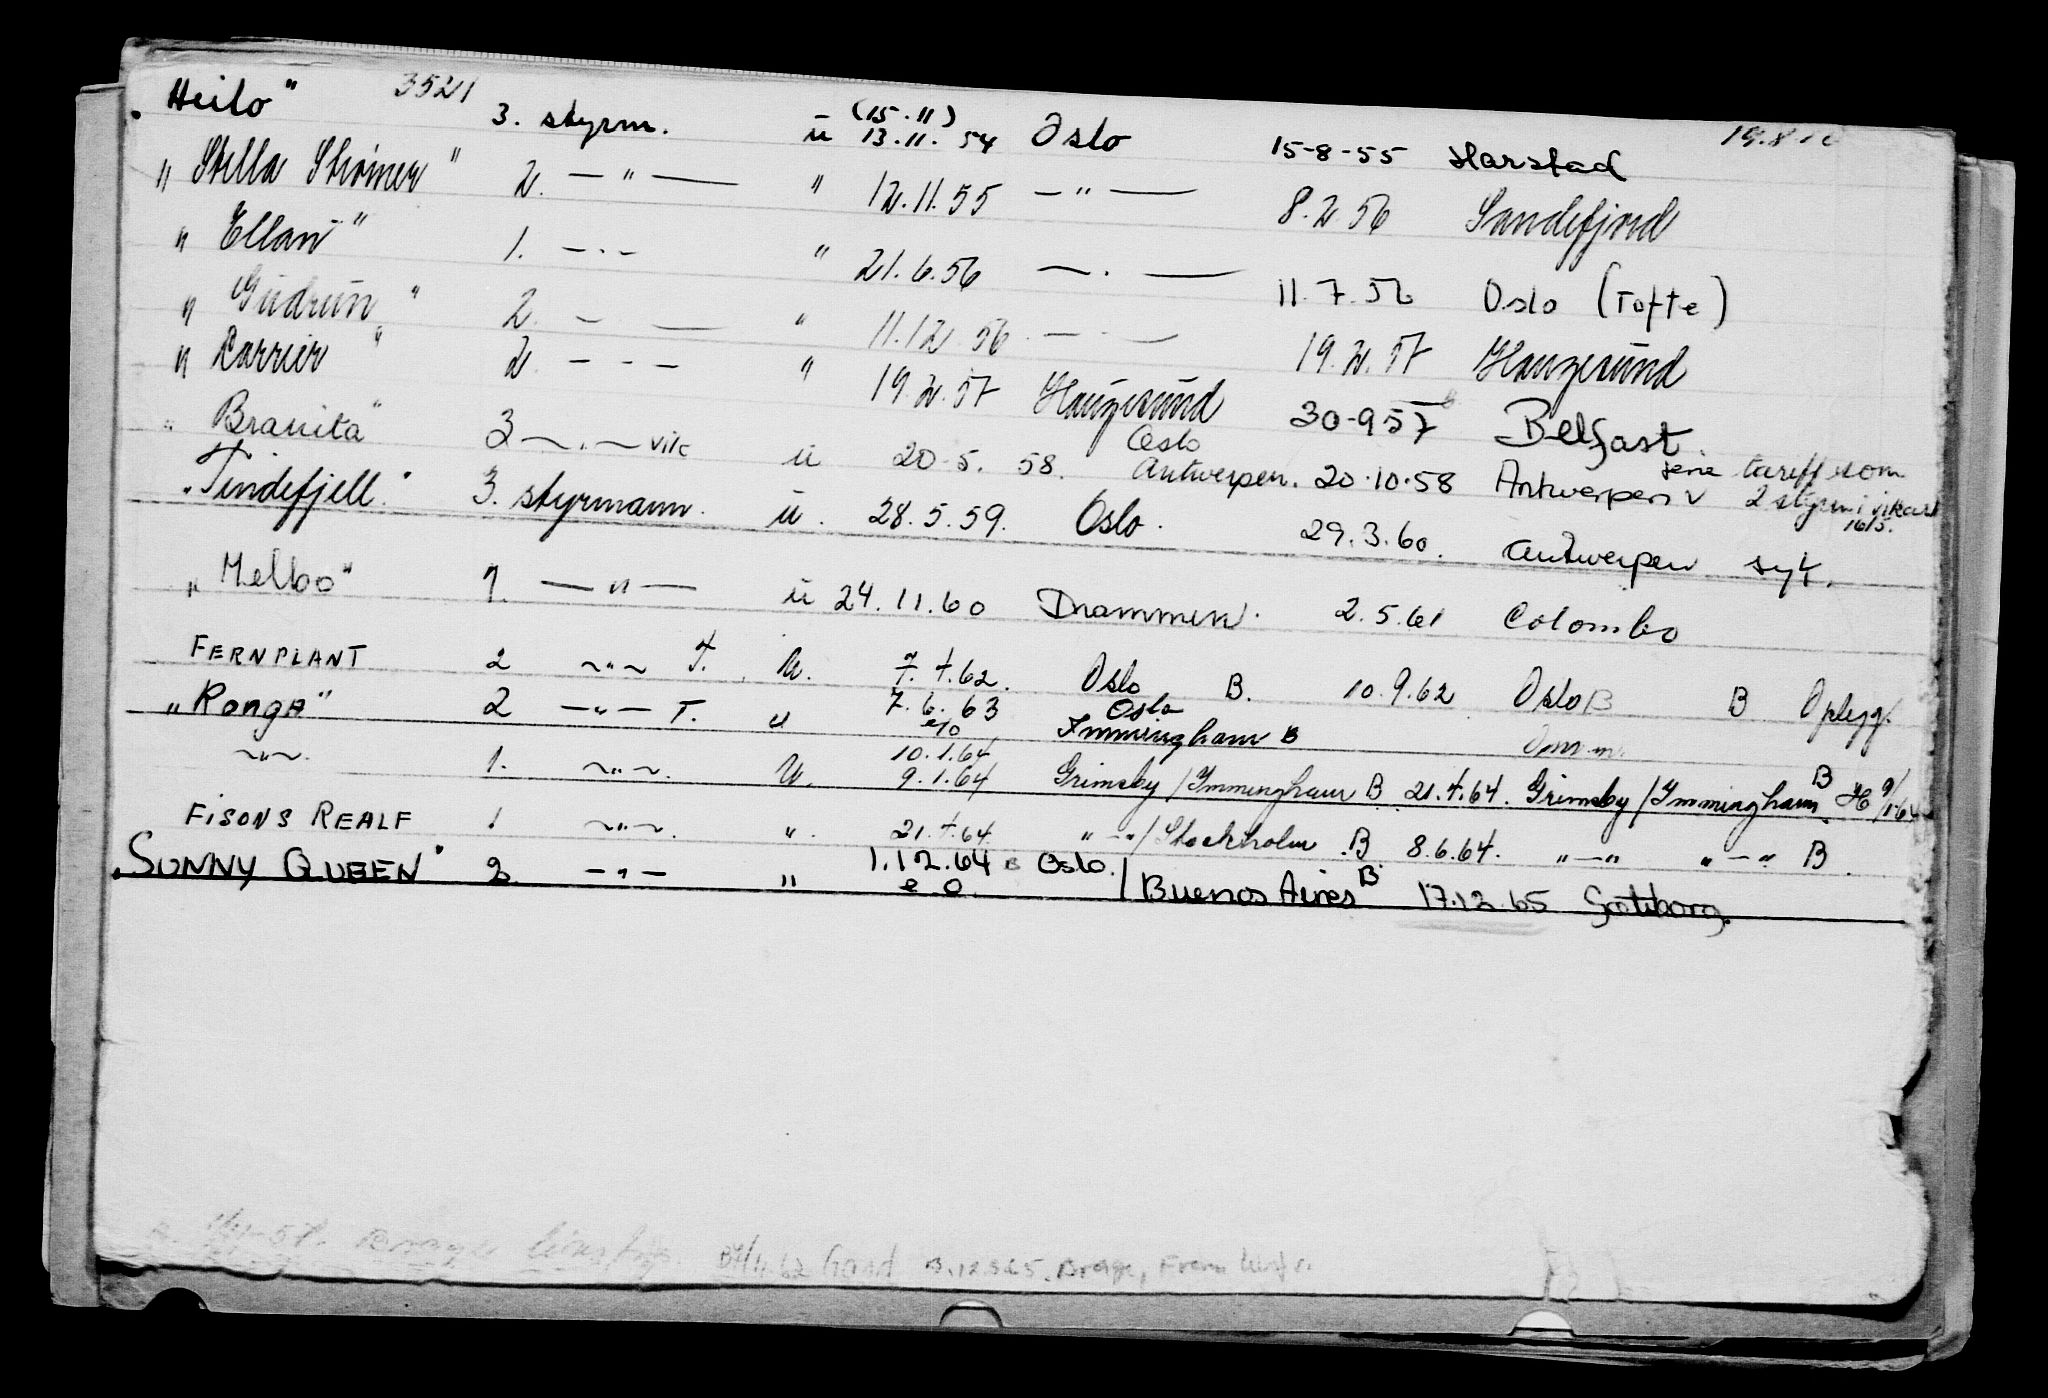 "Heilo" 3521 3. styrm. u (15.11) 13.11.54 Oslo 15-8-55 Harstad 19.8.
"Stella " 2. — " — " 12.11.55 — " — 8.2.56 Sandefjord
"Ellan" 1. — " — " 21.6.56 — " — 11.7.56 Oslo (Tofte)
"Gudrun" 2. — — " 11.12.56 — — 19.2.57 Haugesund
"Carrier" 2. — - — " 19.2.57 Haugesund 30-9 57 Belfast.
"Branita" 2 ~ " ~ vik u 20.5.58. Oslo Antwerpen. 20.10.58 Antwerpen v tariff som 2 styrm i vikart 16/5.
"Tindefjell" 3. styrmann. u. 28.5.59. Oslo. 29.3.60. Antwerpen syk.
"Melbo" 1. — " — u 24.11.60 Drammen. 2.5.61 Colombo
FERNPLANT 2 ~ " ~ T. u. 7.4.62. Oslo B. 10.9.62 Oslo B B Oplegg.
"Ronga" 2 — " — T. u 7.6.63 e/o Oslo Immingham B
~ " ~ 1. ~ " ~. u. 10.1.64 9.1.64 Grimsby/Immingham B 21.4.64. Grimsby/Immingham B H 9/1-64
FISONS REALF 1 ~ " ~. ". 21.4.64 " — "/Stockholm B 8.6.64. " — " " — " B.
"SUNNY QUEEN" 2. — " — " 1.12.64 e.o. B Oslo./Buenos Aires B. 17.12.65 Göteborg.